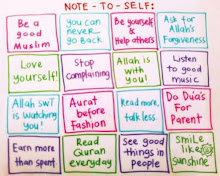 NOTE - TO - SELF:
Be a
good
Muslim
you can
never
go Back
Be yourself
&
Help others
Ask for
Allah's
Forgiveness
Love
yourself!
Stop
complaining
Allah is
with
you!
Listen
to good
music
Allah SWT
is watching
you!
Aurat
before
Fashion
Read more,
talk less.
Do Dua's
For
Parent
Earn more
than spent
Read
Quran
everyday
See good
things in
people
Smile
like
Sunshine